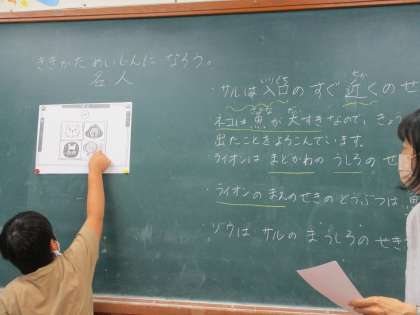 ききかためいじんに なろう。
名人
・サルは入口のすぐ近くのせ
いりぐち
ちか
ネコは魚が大すきなので、きょう
さかな
だい
出たことをよろこんでいます。
ライオンは まどがわの うしろのせ
・ライオンのまえのせきのどうぶつは
・ゾウは サルの まうしろの せき